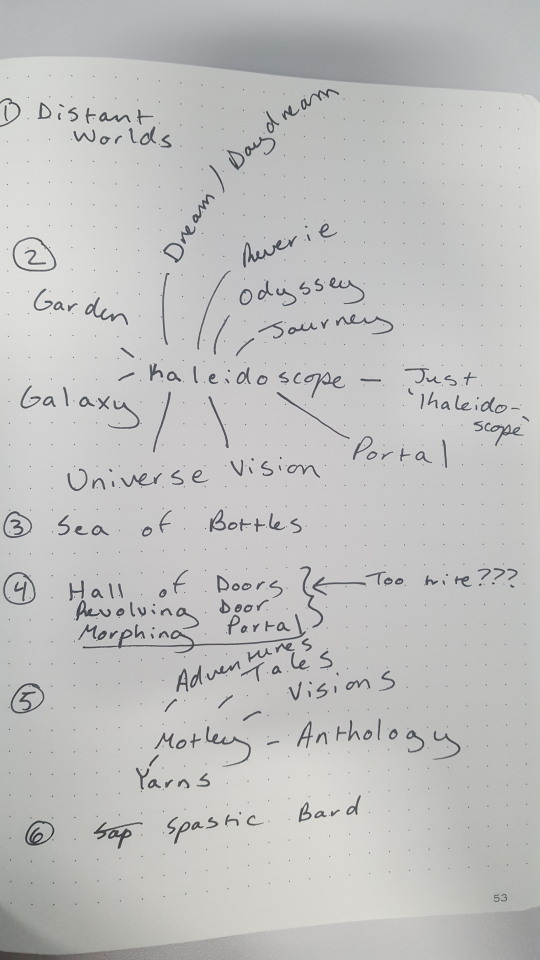 ① Distant
Worlds
Dream / Daydream
②
Reverie
Garden
Odyssey
Journey
Kaleidoscope – Just
'Khaleido-
scope'
Galaxy
Portal
Universe Vision
③ Sea of Bottles
④ Hall of Doors ← Too trite???
Revolving Door
Morphing Portal
Adventures
Tales
⑤ Visions
Motley – Anthology
Yarns
⑥ Sap Spastic Bard
53